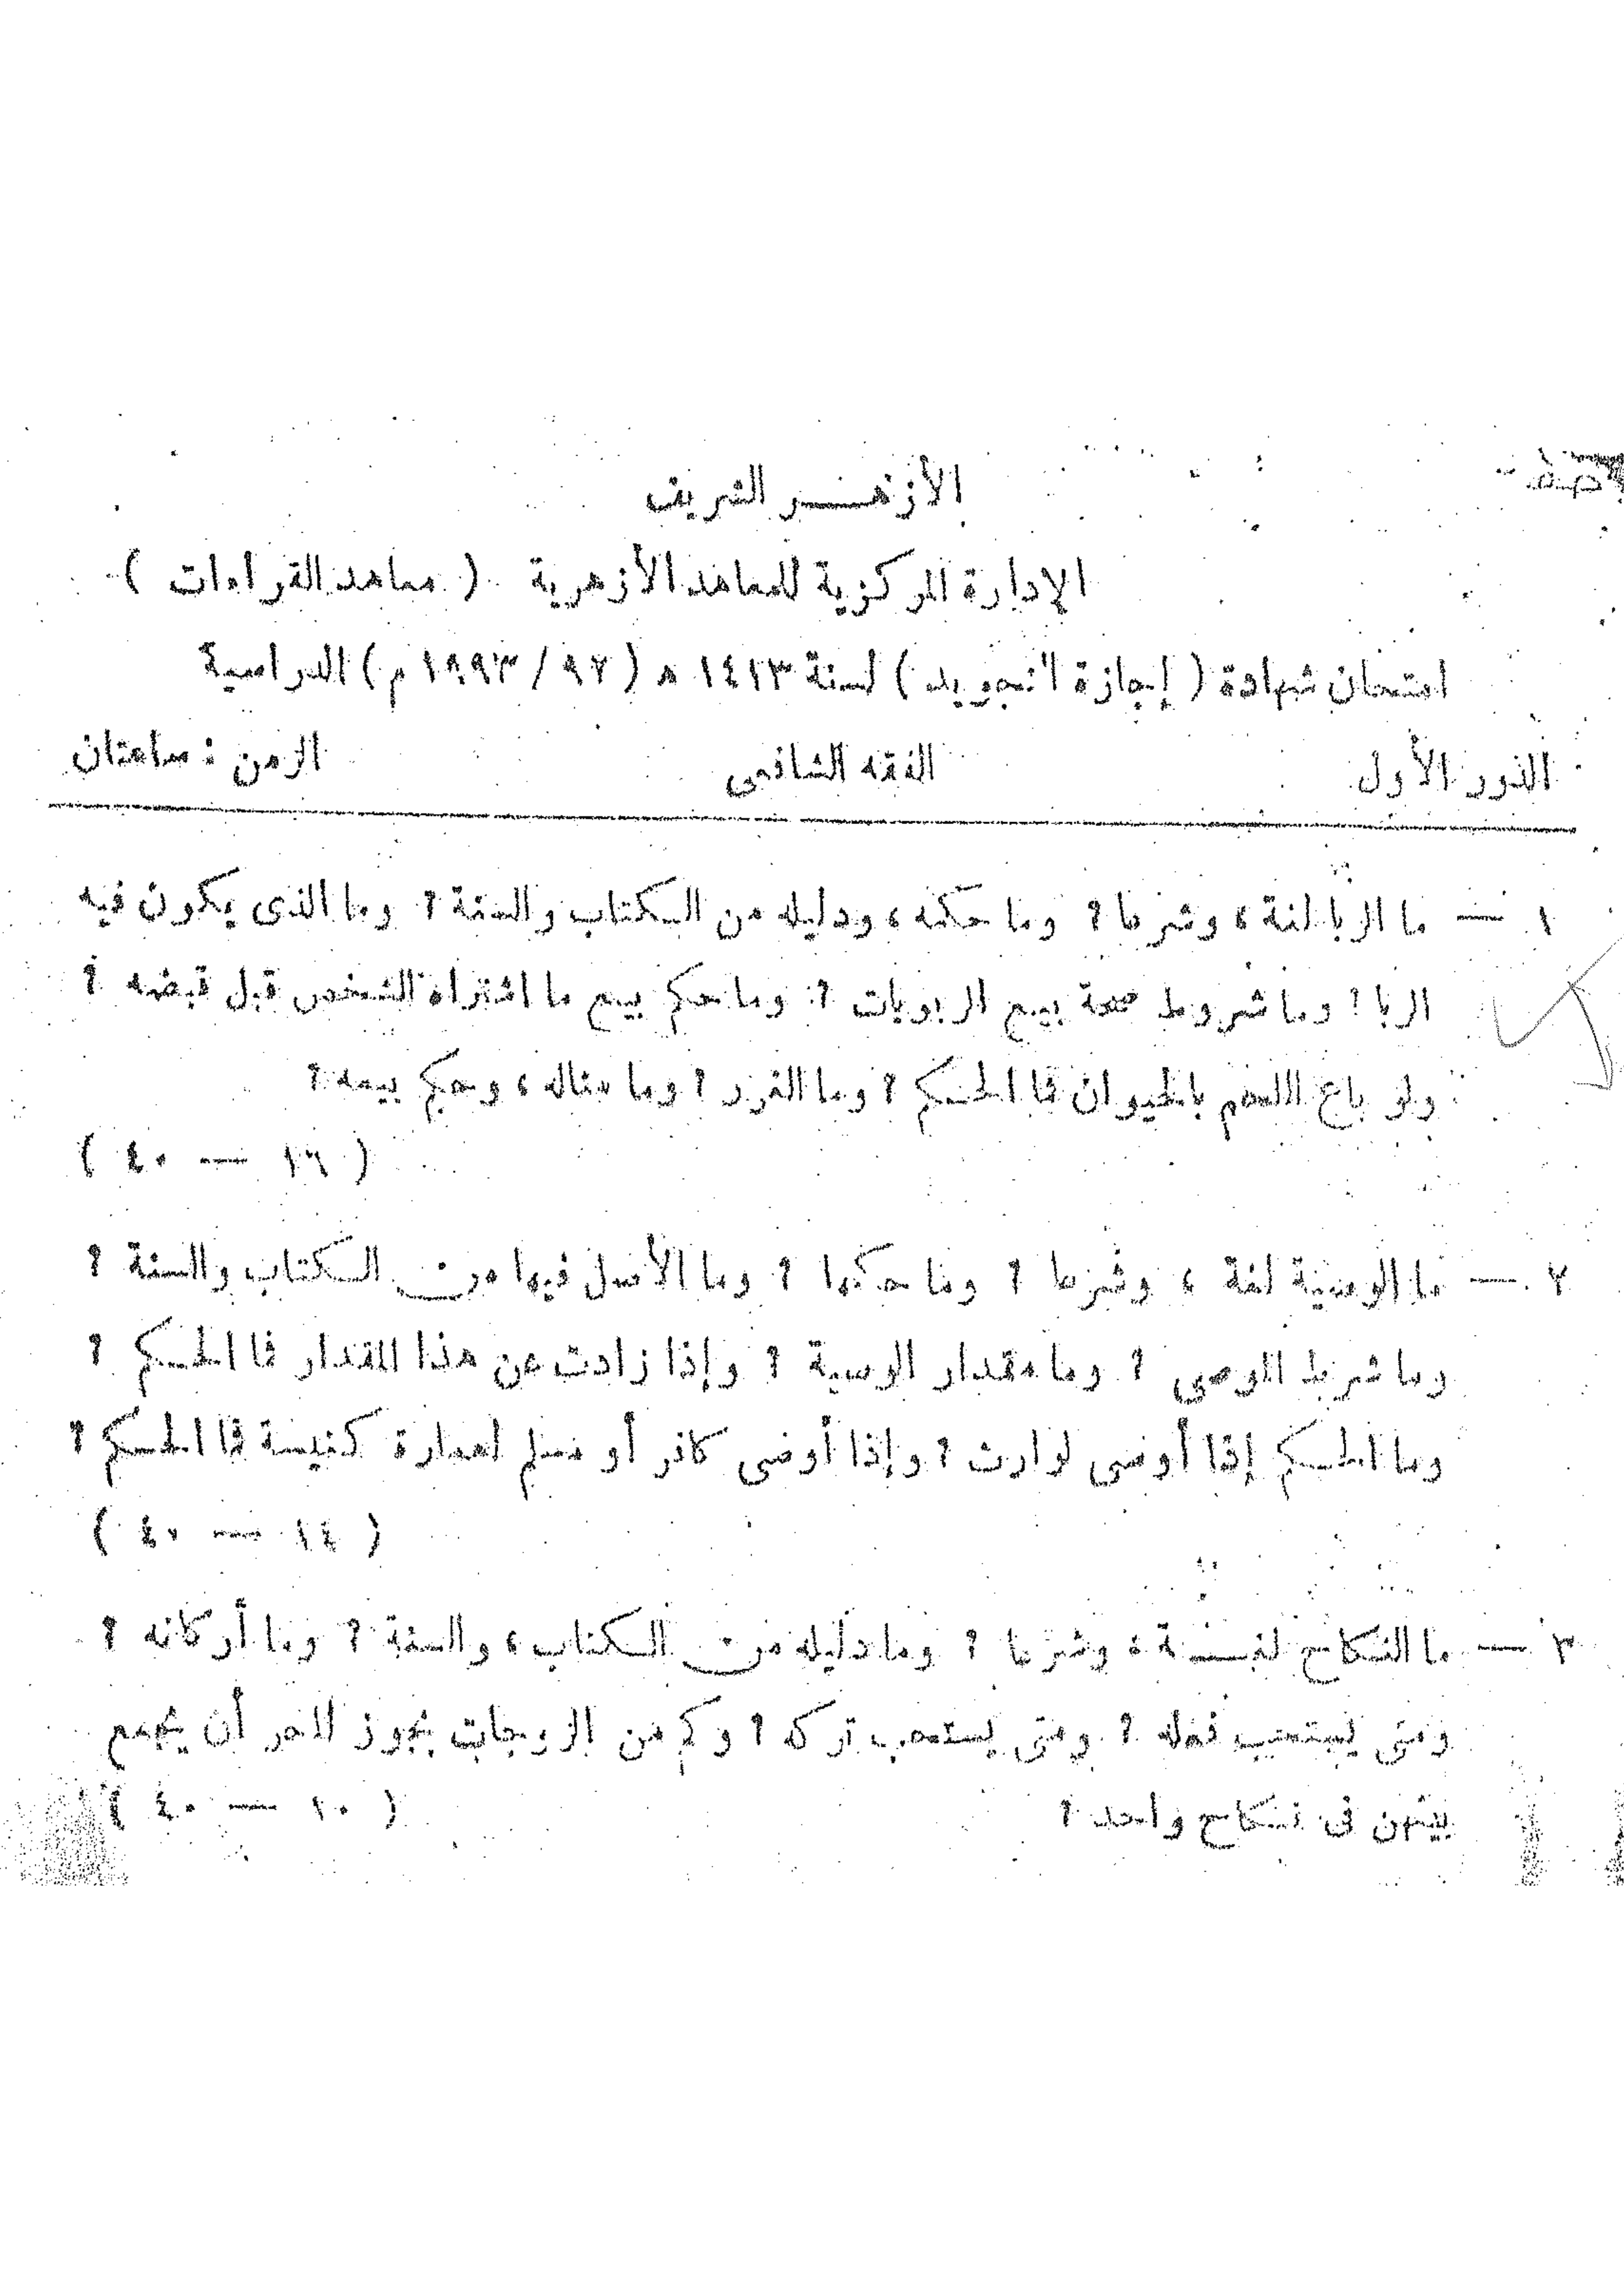 الأزهـــر الشريف
الإدارة المركزية للمعاهد الأزهرية ( معاهد القراءات )
امتحان شهادة ( إجازة التجويد ) لسنة ١٤١٣ هـ ( ٩٢ / ١٩٩٣ م ) الدراسية
الدور الأول
الفقه الشافعى
الزمن : ساعتان
١ — ما الربا لغة ، وشرعا ؟ وما حكمه ، ودليله من الكتاب والسنة ؟ وما الذى يكون فيه
الربا ؟ وما شروط صحة بيع الربويات ؟ وما حكم بيع ما اشتراه الشخص قبل قبضه ؟
ولو باع اللحم بالحيوان فما الحكم ؟ وما الغرر ؟ وما مثاله ، وحكم بيعه ؟
( ١٦ — ٤٠ )
٢ — ما الوصية لغة ، وشرعا ؟ وما حكمها ؟ وما الأصل فيها من الكتاب والسنة ؟
وما شرط الموصى ؟ وما مقدار الوصية ؟ وإذا زادت عن هذا المقدار فما الحكم ؟
وما الحكم إذا أوصى لوارث ؟ وإذا أوصى كافر أو مسلم لعمارة كنيسة فما الحكم ؟
( ١٤ — ٤٠ )
٣ — ما النكاح لغــة ، وشرعا ؟ وما دليله من الكتاب ، والسنة ؟ وما أركانه ؟
ومتى يستحب فعله ؟ ومتى يستحب تركه ؟ وكم من الزوجات يجوز للحر أن يجمع
بينهن فى نكاح واحد ؟
( ١٠ — ٤٠ )